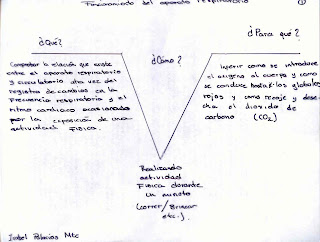 Funcionamiento del aparato respiratorio
①
¿Qué?
¿Cómo?
¿Para qué?
Comprobar la relación que existe
entre el aparato respiratorio
y circulatorio a través del
registro de cambios en la
Frecuencia respiratorio y el
ritmo cardiaco ocasionado
por la exposición de una
actividad Física.
Inferir como se introduce
el oxígeno al cuerpo y como
se conduce hasta los globulos
rojos y como recoje y dese
cha el dioxido de
carbono (CO₂)
Realizando
actividad
Física durante
un minuto
(correr/Brincar
etc.)
Isabel